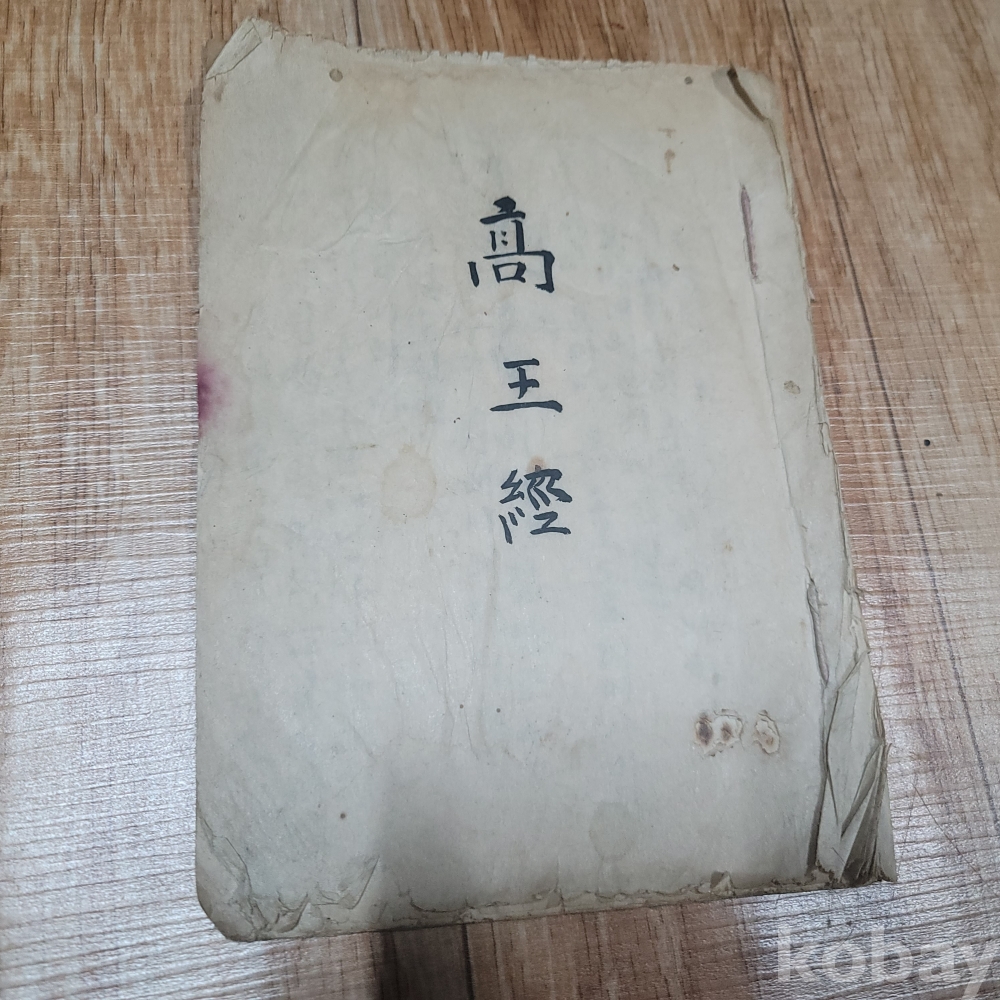 高王經
kobay